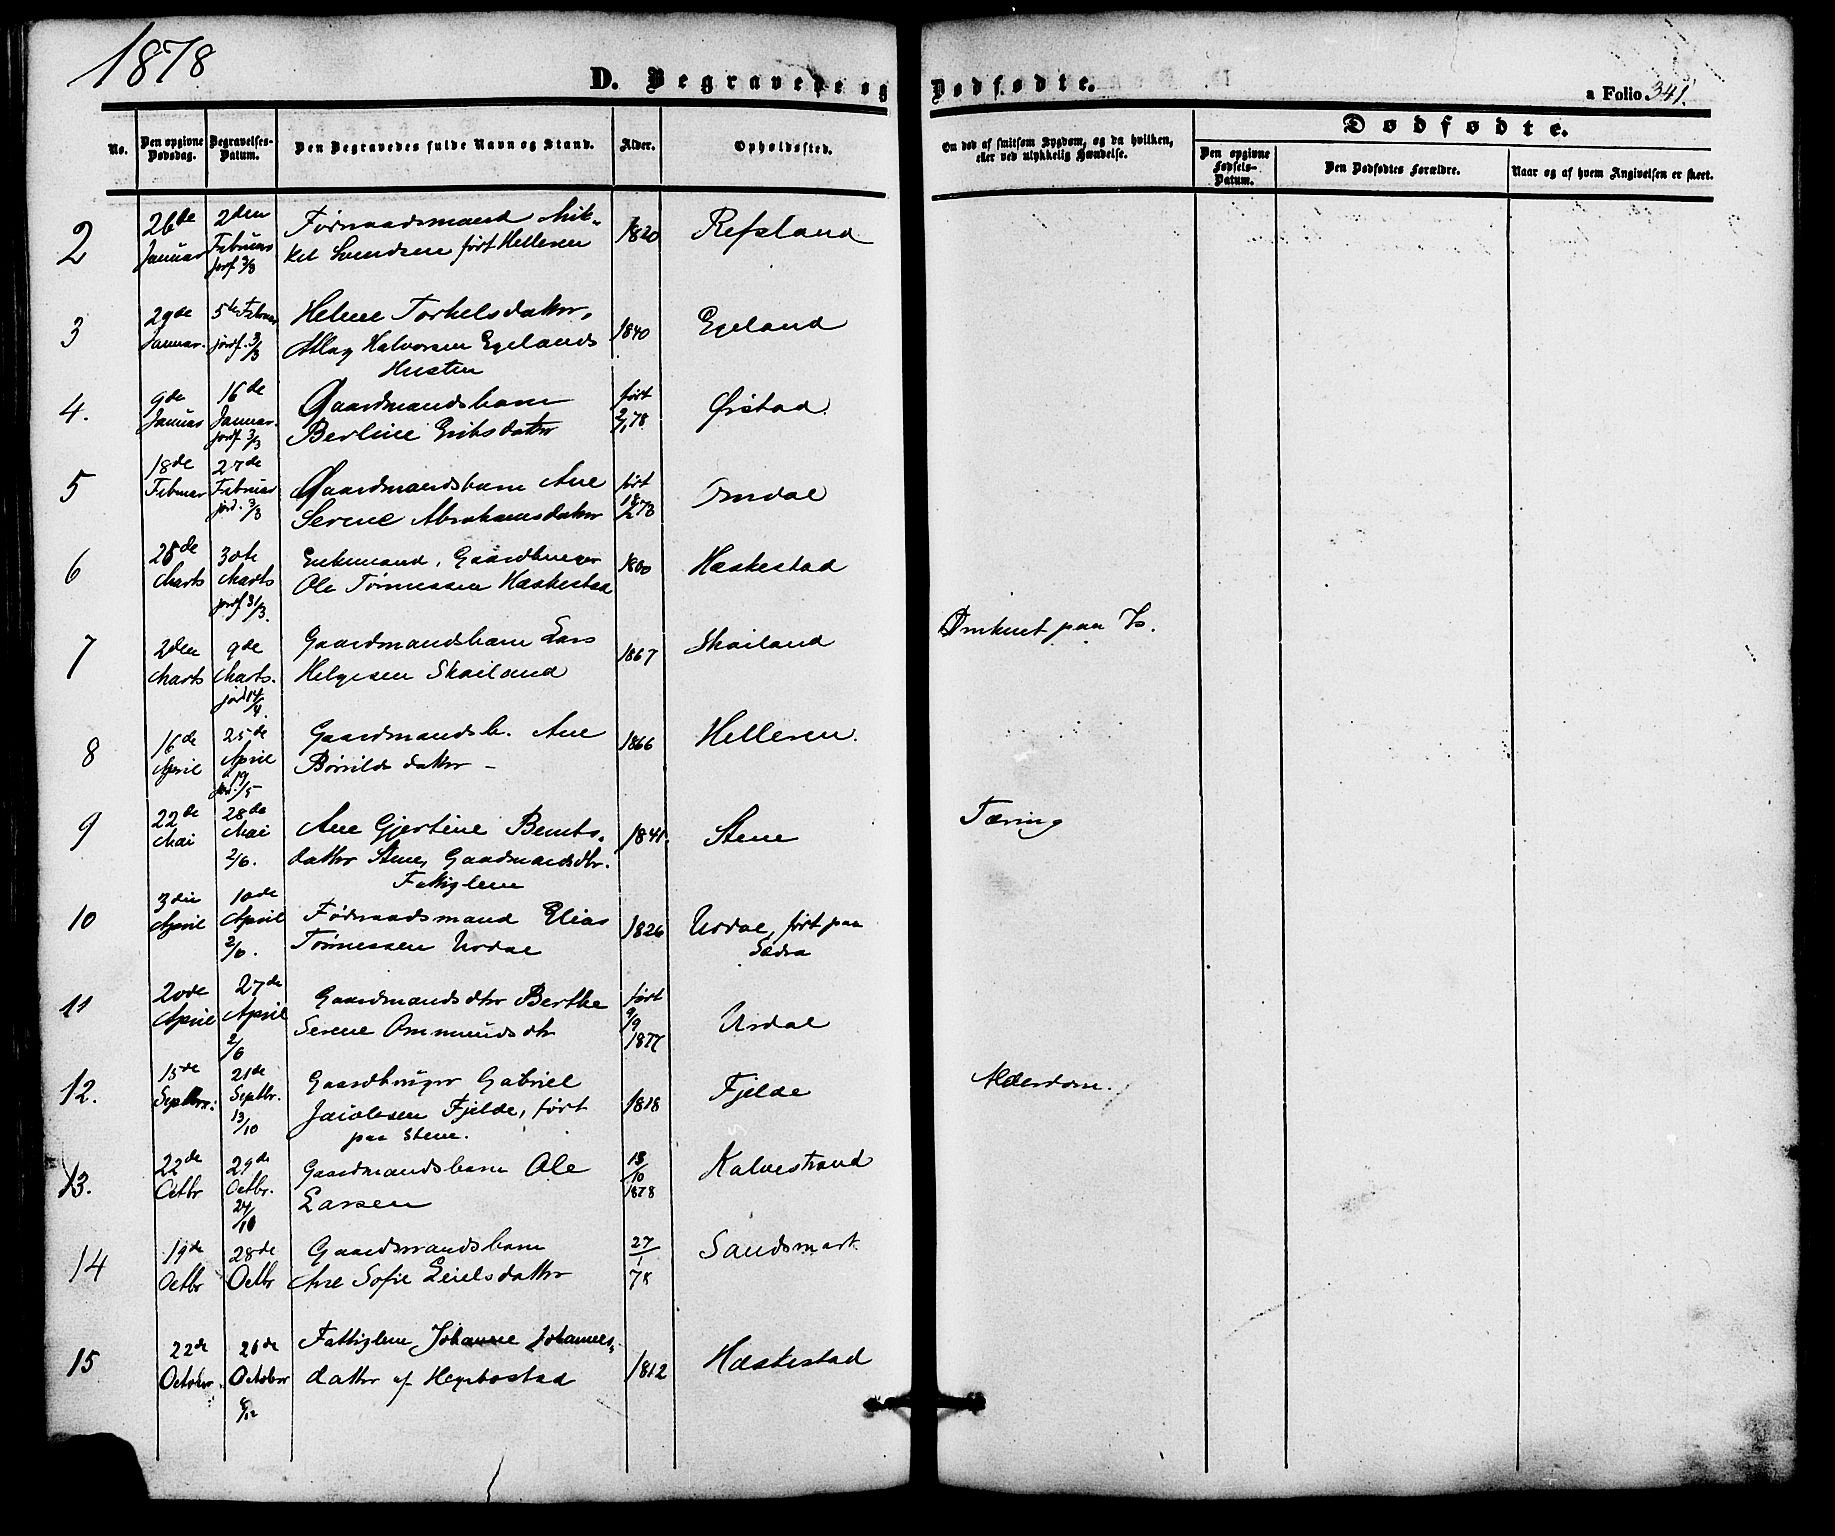 1878
D. Begravede og Dødfødte.
a Folio 341.
No.
Den opgivne Dødsdag.
Begravelses-Datum.
Den Begravedes fulde Navn og Stand.
Alder.
Opholdssted.
Om død af smitsom Sygdom, og da hvilken, eller ved ulykkelig Hændelse.
Dødfødte.
Den opgivne Fødsels-Datum.
Den Dødfødtes Forældre.
Naar og af hvem Angivelsen er skeet.
2
26de Januar
2den Februar
jordf 3/3
Føderaadsmand Mik-
kel Svendsen født Helleren
1820
Refsland
3
29de Januar.
5te Februar
jordf. 3/3
Helene Torkelsdatter,
Atlag Halvorsen Egelands
Hustru
1840
Egeland
4.
9de Januar
16de Januar.
jordf 3/3
Gaardmandsbarn
Berline Eriksdatter
født 2/1 78
Ørstad
5
18de Februar
27de Februar
jord. 3/3
Gaardmandsbarn Ane
Serine Abrahamsdatter
født
6
Marts
30te Marts
jordf 31/3.
Enkemand, Gaardbruger
Ole Tønnessen Haskestad
1800
Haskestad
7
2den Marts
9de Marts.
jord 14/4.
Gaardmandsbarn Lars
Helgesen Skailand
1867
Skailand
Omkomet paa Is.
8
16de April
25de April
jord. 19/5
Gaardmandsb. Ane
Børrildsdatter -
1866
Helleren.
9
22de Mai
28de Mai
2/6.
Ane Gjertine Bernts-
datter Stene, Gaardmandsdtr.
Fattiglem
1841.
Stene
Tæring
10
3die April
10de April
2/6.
Føderaadsmand Elias
Tønnessen Urdal
1826
Urdal, født paa
Sædra
11
20de April
27de April
2/6
Gaardmandsdtr Berthe
Serene Ommundsdtr
født 9/9 1877
Urdal
12.
15de Septbr.
21de Septbr.
13/10
Gaardbruger Gabriel
Jacobsen Fjelde, født
paa Stene.
1818
Fjelde
Alderdom.
13.
22de Octbr
29de Octbr.
27/10
Gaardmandsbarn Ole
Larsen
13/10 1878
Kalvestrand
14
19de Octbr
28de Octbr
Gaardsmandsbarn
Ane Sofie Leielsdatter
27/1 78
Sandsmark
15
22de October.
26de October
8/12
Fattiglem Johanne Johannes-
datter af Hegebostad
1812
Haskestad